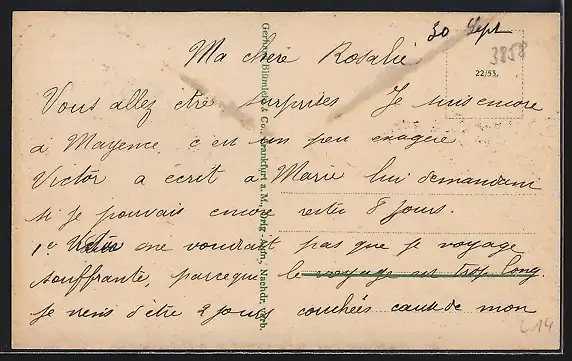 30 Sept
3858
Ma chère Rosalie
22/53.
Vous allez être surprises Je suis encore
à Mayence c'est un peu exagéré
Victor a écrit à Marie lui demandant
si je pouvais encore rester 8 jours.
1° Victor me voudrait pas que je voyage
souffrante, parceque le voyage est trop long.
Je viens d'être 2 jours couchées cause de mon
L14
Gerhard Blümlein & Co., Frankfurt a. M., Orig.-Aufn., Nachdr. verb.